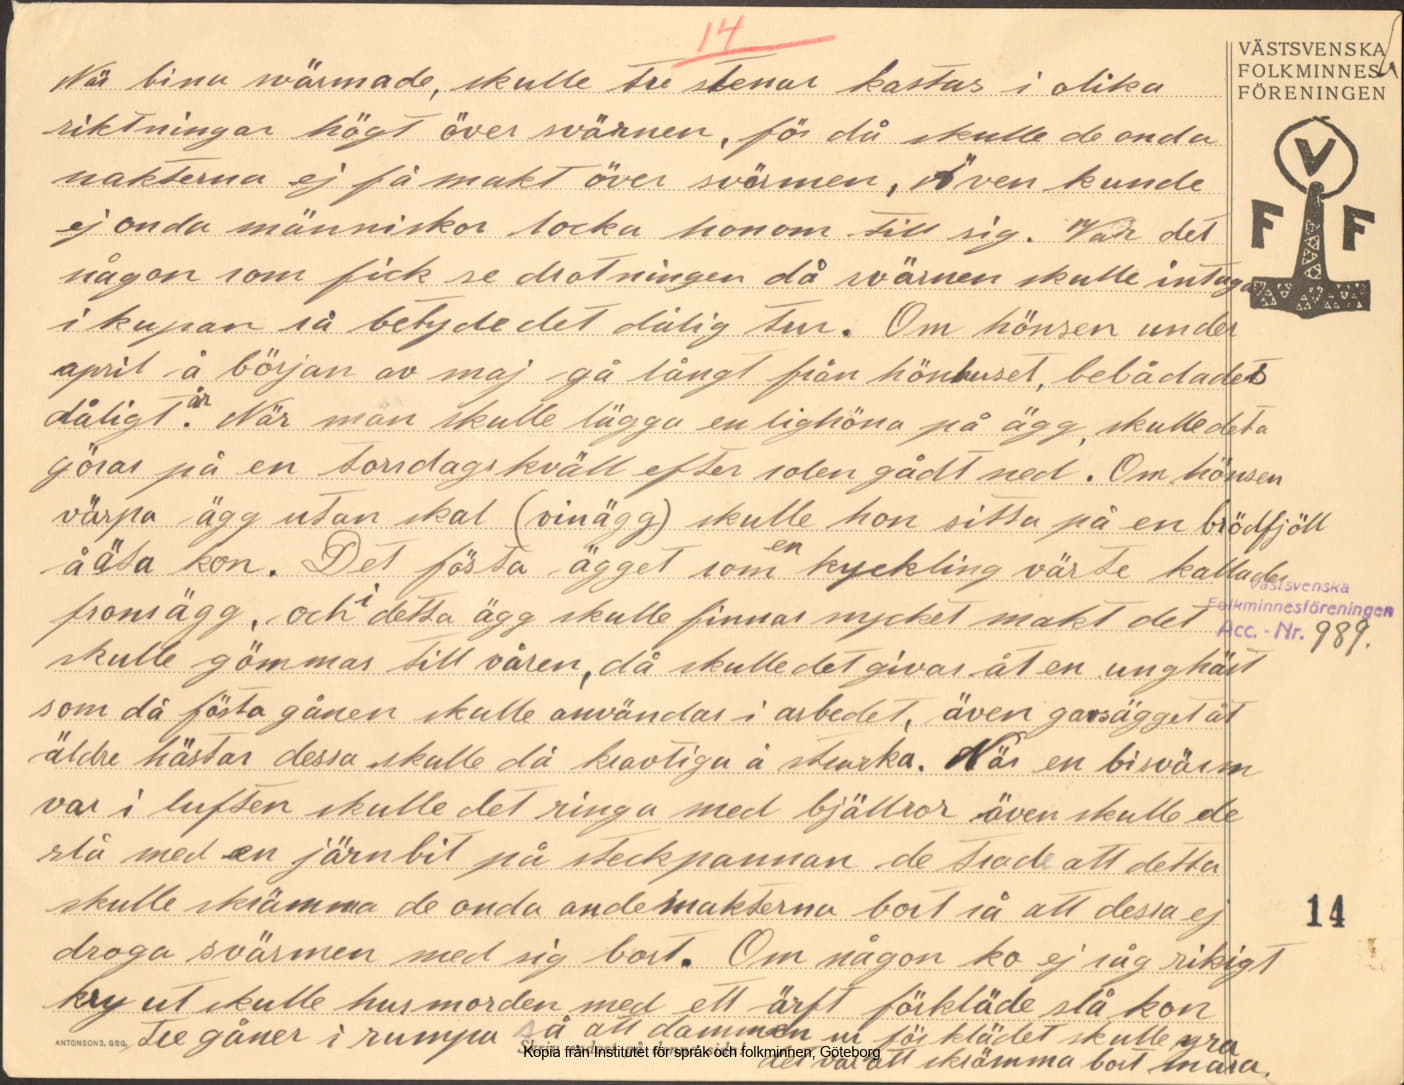 14
VÄSTSVENSKA
FOLKMINNES
FÖRENINGEN
V
F F
När bina svärmade, skulle tre stenar kastas i olika
riktningar högt över svärnen, för då skulle de onda
makterna ej få makt över svärmen, även kunde
ej onda människor locka honom till sig. Var det
någon som fick se drotningen då svärnen skulle intaga
i kupan så betyde det dålig tur. Om hönsen under
april å början av maj gå långt från hönhuset, bebådades
dåligt år. När man skulle lägga en lighöna på ägg, skulle deta
göras på en torsdagskväll efter solen gådt ned. Om hönsen
värpa ägg utan skal (vinägg) skulle hon sitta på en brödfjöll
å äta kon. Det fösta ägget som en kyckling värte kallades
fronsägg, och i detta ägg skulle finnas mycket makt det
skulle gömmas till våren, då skulle det givas åt en unghäst
som då fösta gånen skulle användas i arbedet, även gavs ägget åt
äldre hästar dessa skulle då kravtiga å sturka. När en bisvärm
var i luften skulle det ringa med bjällror även skulle de
slå med en järnbit på steckpannan de trade att detta
skulle skrämma de onda andemakterna bort så att dessa ej
droga svärmen med sig bort. Om någon ko ej såg rikigt
kry ut skulle husmorden med ett ärft förkläde slå kon
tre gåner i rumpa så att dammen ur förklädet skulle yra
det var att skrämma bort mara.
Västsvenska
Folkminnesföreningen
Acc.-Nr. 989.
14
ANTONSONS, GBG.
Kopia från Institutet för språk och folkminnen, Göteborg